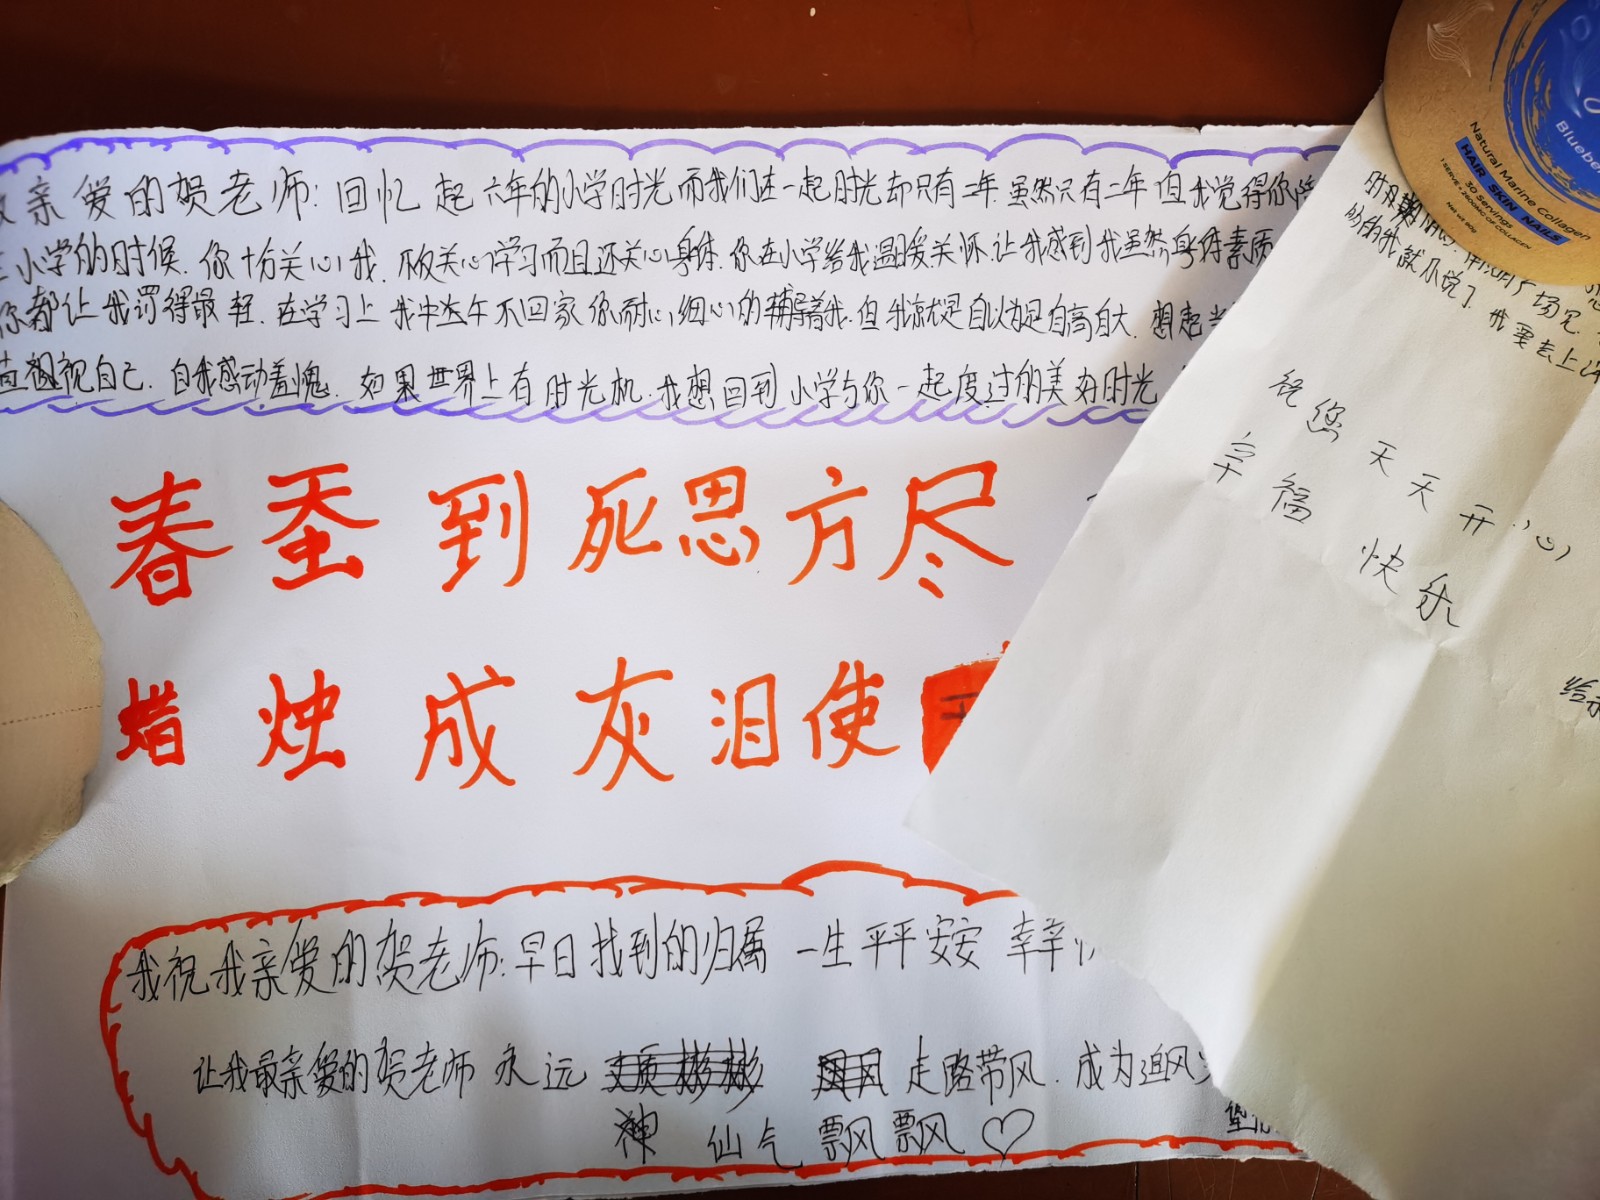 亲爱的贺老师:回忆起六年的小学时光而我们在一起时光却只有二年.虽然只有二年但我觉得你陪
小学的时候.你十分关心我.不仅关心学习而且还关心身体.你在小学给我温暖关怀.让我感到我虽然身体素质
你都让我罚得最轻.在学习上我中午不回家你耐心细心的辅导着我.但我就是自以为是自高自大.想起当
视自己.自我感动羞愧.如果世界上有时光机.我想回到小学与你一起度过的美好时光
春蚕到死思方尽
蜡烛成灰泪使
我祝我亲爱的贺老师:早日找到的归属 一生平平安安 幸幸
让我最亲爱的贺老师永远 文质彬彬 走路带风.成为追风
神 仙气飘飘 ♡
我就不说了.我要去上课
祝您天天开心
幸福快乐
Blueber
Natural Marine Collagen
HAIR SKIN NAILS
30 Servings
1 SERVE = 2400MG OF COLLAGEN
Net Wt 90g